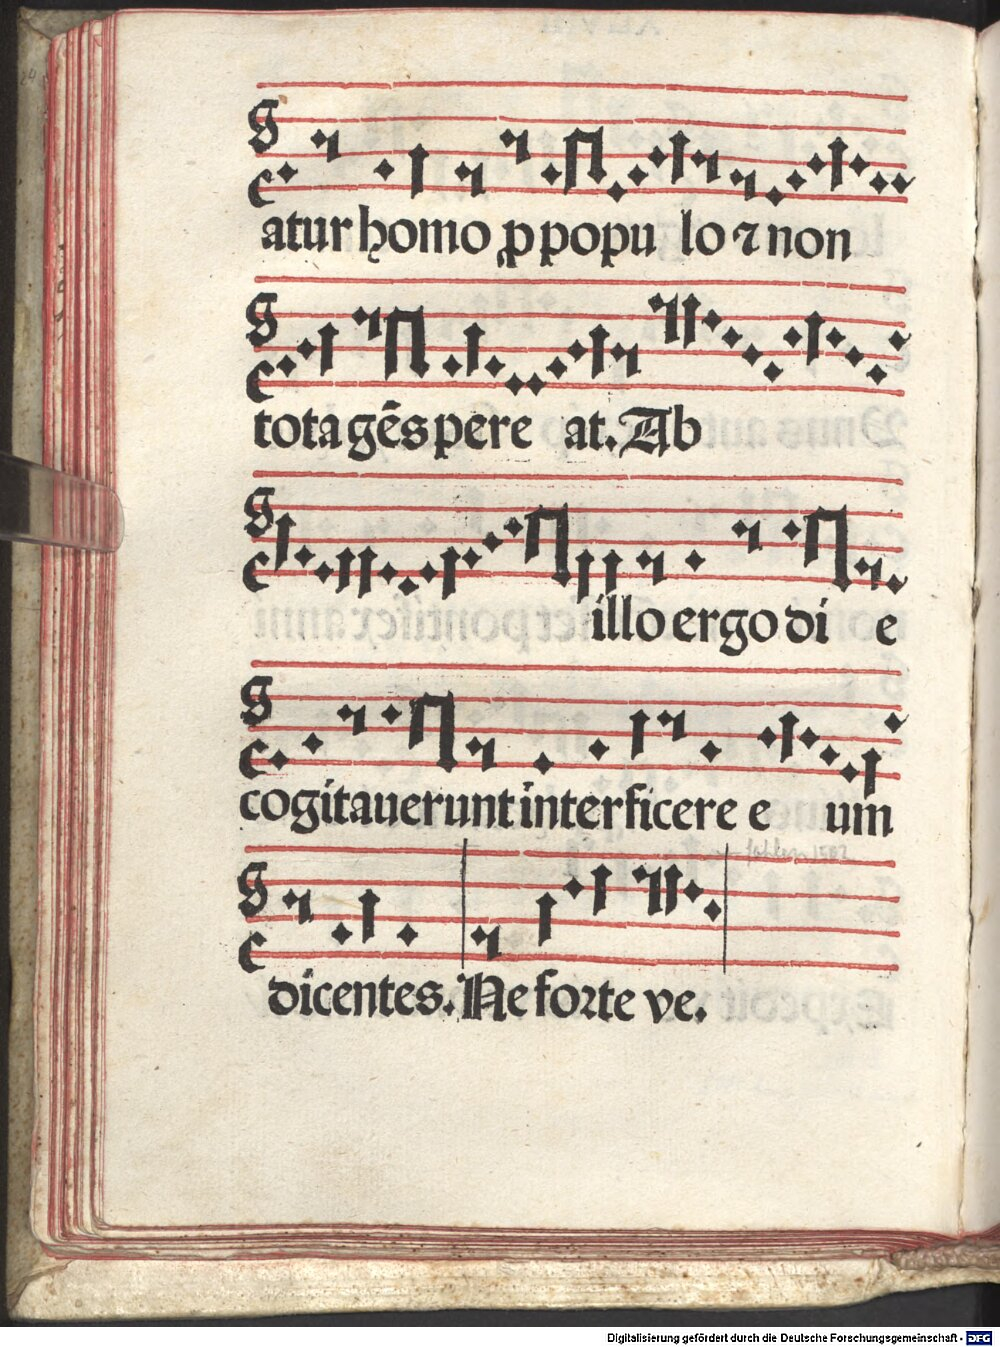 atur homo ꝓ popu lo ⁊ non
tota gēs pere at. Ab
illo ergo di e
cogitauerunt interficere e um
dicentes. Ne forte ve.
Digitalisierung gefördert durch die Deutsche Forschungsgemeinschaft - DFG